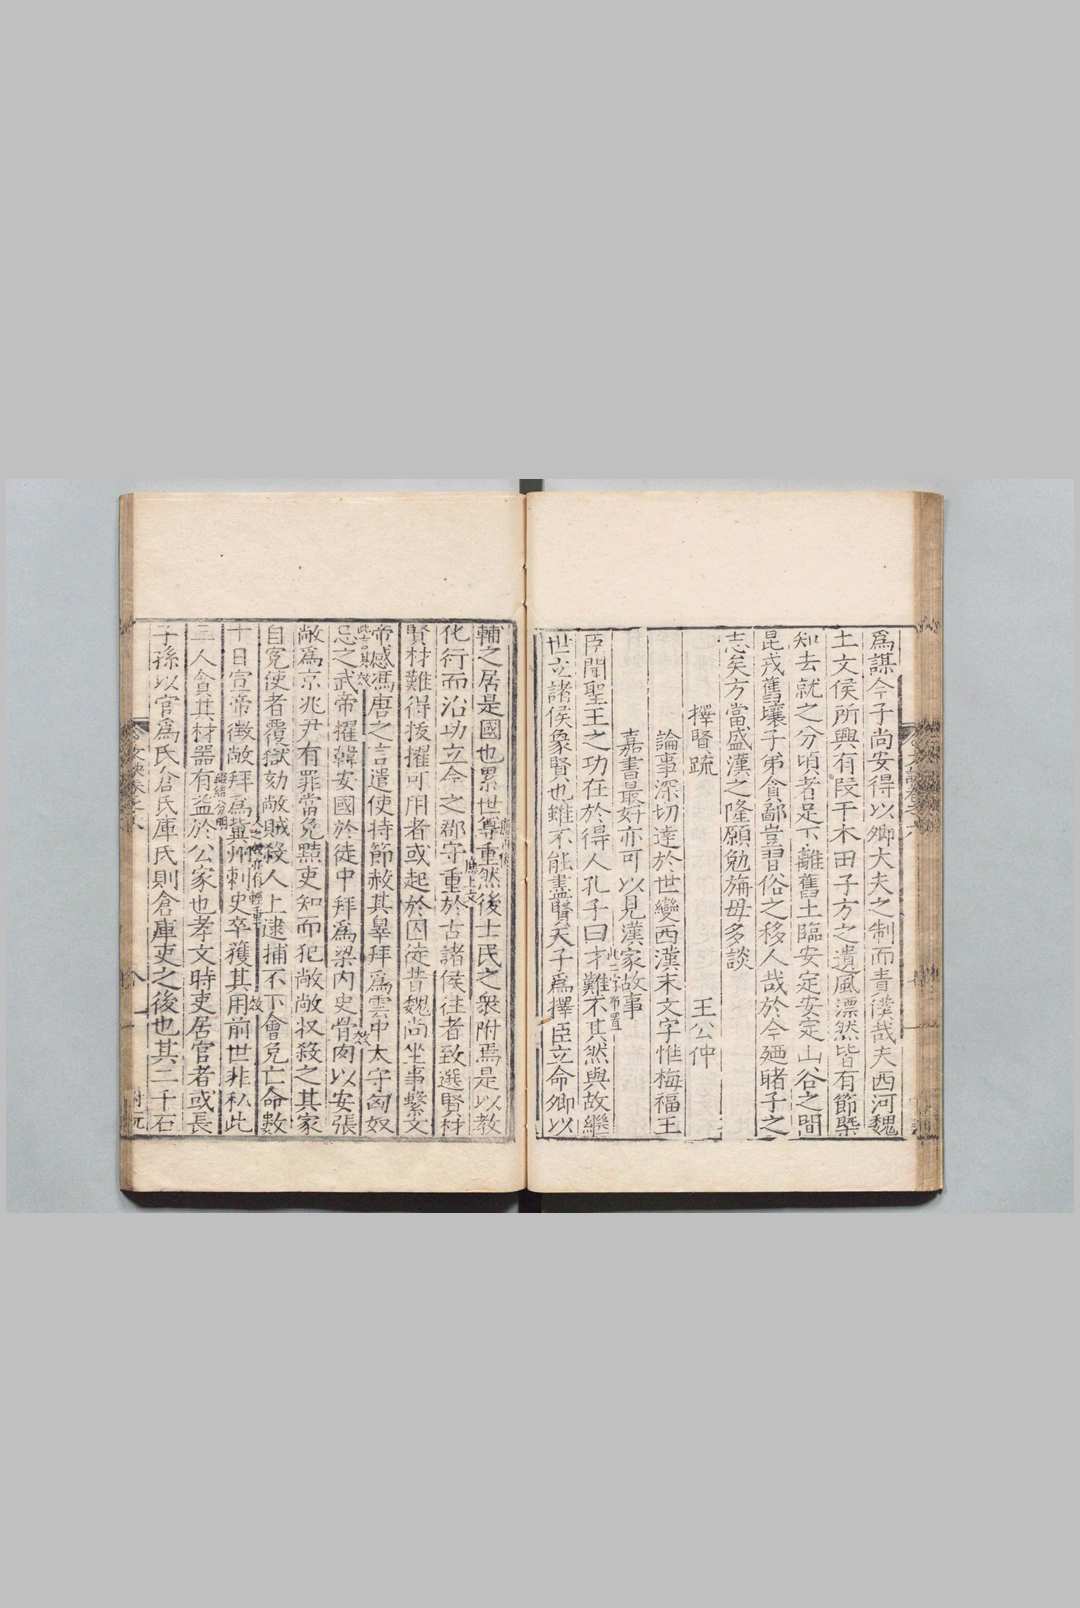 爲謀今子尚安得以卿大夫之制而責僕哉夫西河魏
土文侯所興有段干木田子方之遺風漂然皆有節槩
知去就之分頃者足下離舊土臨安定安定山谷之間
昆戎舊壤子弟貪鄙豈習俗之移人哉於今廼睹子之
志矣方當盛漢之隆願勉旃毋多談
擇賢疏
王公仲
論事深切達於世變西漢末文字惟梅福王
嘉書最好亦可以見漢家故事
臣聞聖王之功在於得人孔子曰才難不其然與故繼
世立諸侯象賢也雖不能盡賢天子爲擇臣立命卿以
輔之居是國也累世尊重然後士民之衆附焉是以教
化行而治功立今之郡守重於古諸侯往者致選賢材
賢材難得拔擢可用者或起於囚徒昔魏尚坐事繫文
帝感馮唐之言遣使持節赦其辠拜爲雲中太守匈奴
忌之武帝擢韓安國於徒中拜爲梁内史骨肉以安張
敞爲京兆尹有罪當免黠吏知而犯敞敞收殺之其家
自冤使者覆獄劾敞賊殺人上逮捕不下會免亡命數
十日宣帝徵敞拜爲冀州刺史卒獲其用前世非私此
三人貪其材器有益於公家也孝文時吏居官者或長
子孫以官爲氏倉氏庫氏則倉庫吏之後也其二千石